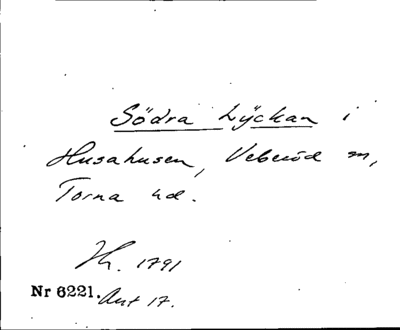 Södra Lyckan i
Husahusen, Veberöd sn,
Torna hd.
Th. 1791
Nr 6221. Ant 17.